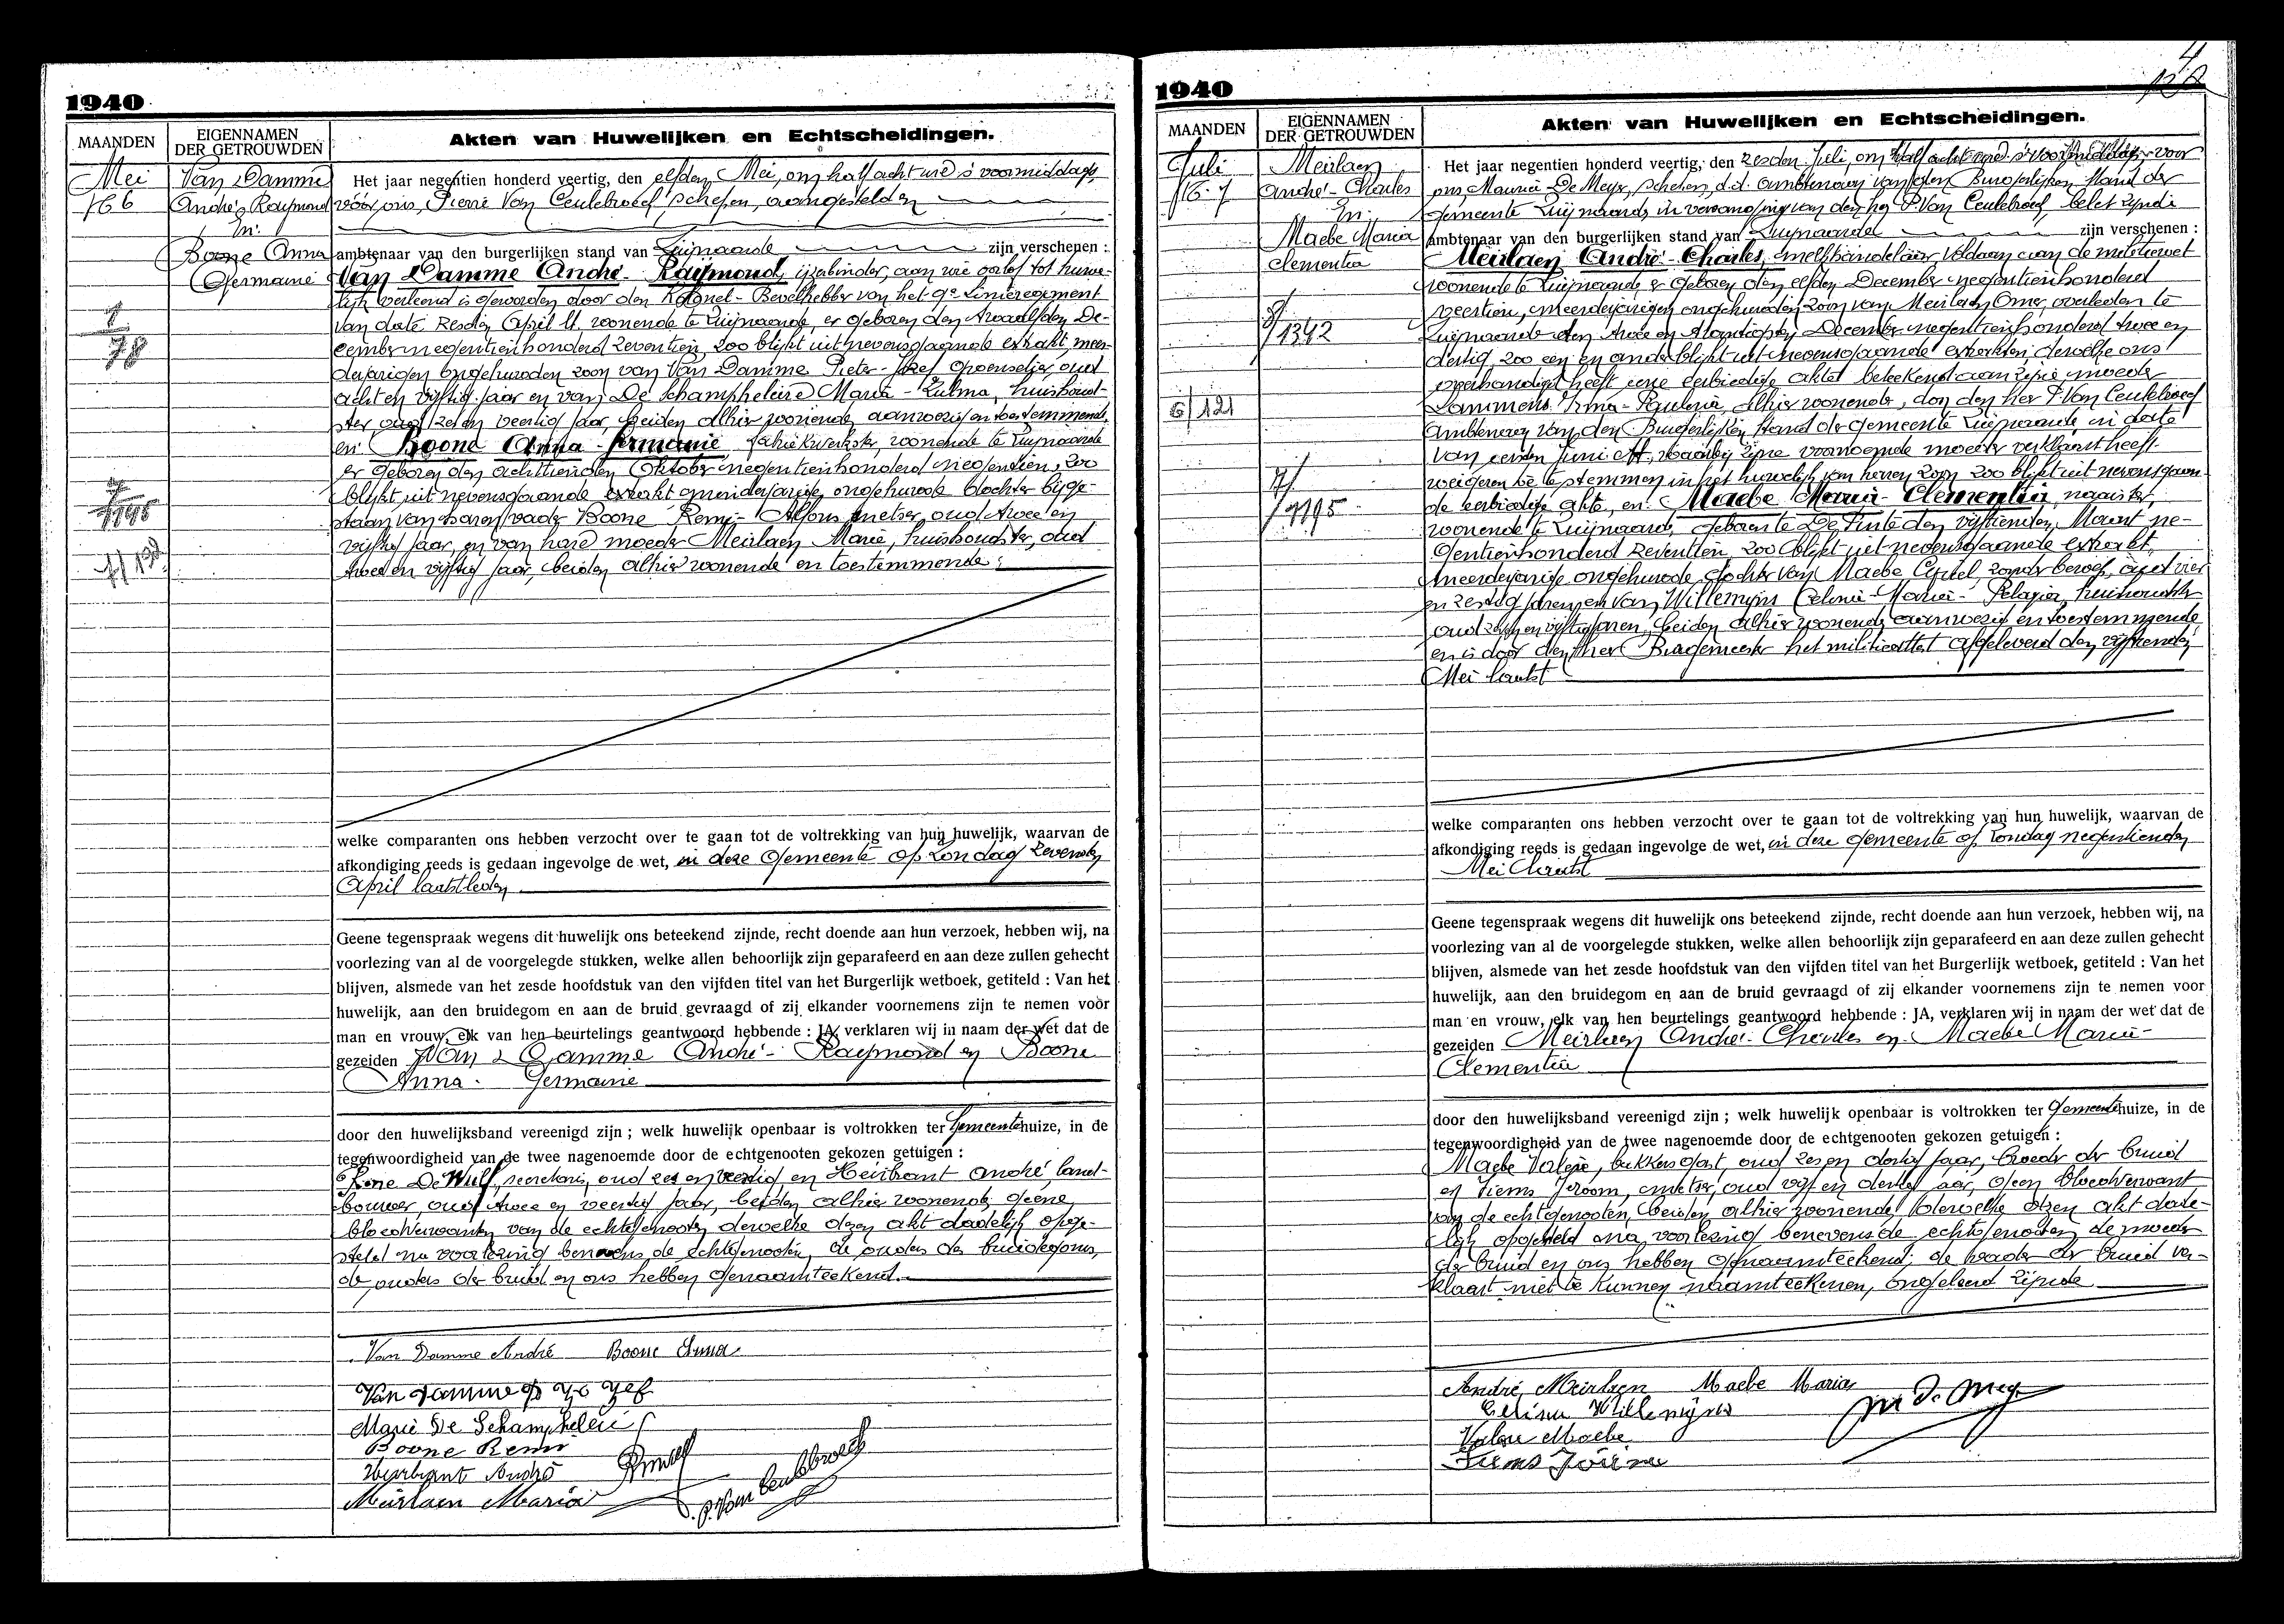 1940
MAANDEN
EIGENNAMEN
DER GETROUWDEN
Akten van Huwelijken en Echtscheidingen.
Mei
Van Damme
André Raymond
En
Boone Anna
Germaine
78
Het jaar negentien honderd veertig, den elfden Mei, om half acht ure 's voormiddags,
vóór ons, Pierre Van Ceulebroeck, schepen, aangestelden
ambtenaar van den burgerlijken stand van Zwijnaarde zijn verschenen :
Van Damme André-Raymond, ijzerbinder, aan wie oorlof tot huwe-
lijk verleend is geworden door den Kolonel-Bevelhebber van het 9e Linieregiment
van date zesden April ll. woonende te Zwijnaarde, er geboren den twaalfden De-
cember negentienhonderd zeventien, zoo blijkt uit nevensgaande extrakt, meer-
derjarigen ongehuwden zoon van Van Damme Pieter-Jozef, oud
acht en vijftig jaar en van De Schampheleire Maria-Zulma, huishoud-
ster oud zeven veertig jaar, beiden alhier woonende, aanwezig en toestemmende,
en Boone Anna-Germanie, fabriekwerkster, woonende te Zwijnaarde
er geboren den achttienden Oktober negentienhonderd negentien, zoo
blijkt uit nevensgaande extrakt, minderjarige, ongehuwde dochter bijge-
staan van haren vader Boone Remi-Alfons, metser, oud twee en
vijftig jaar, en van hare moeder Meirlaen Marie, huishoudster, oud
twee en vijftig jaar, beiden alhier woonende en toestemmende;
welke comparanten ons hebben verzocht over te gaan tot de voltrekking van hun huwelijk, waarvan de
afkondiging reeds is gedaan ingevolge de wet, in deze Gemeente op Zondag zevenden
April laatstleden
Geene tegenspraak wegens dit huwelijk ons beteekend zijnde, recht doende aan hun verzoek, hebben wij, na
voorlezing van al de voorgelegde stukken, welke allen behoorlijk zijn geparafeerd en aan deze zullen gehecht
blijven, alsmede van het zesde hoofdstuk van den vijfden titel van het Burgerlijk wetboek, getiteld : Van het
huwelijk, aan den bruidegom en aan de bruid gevraagd of zij elkander voornemens zijn te nemen voor
man en vrouw, elk van hen beurtelings geantwoord hebbende : JA, verklaren wij in naam der wet dat de
gezeiden Van Damme André-Raymond en Boone
Anna-Germaine
door den huwelijksband vereenigd zijn ; welk huwelijk openbaar is voltrokken ter Gemeentehuize, in de
tegenwoordigheid van de twee nagenoemde door de echtgenooten gekozen getuigen :
René De Wulf, secretaris, oud zes en veertig, en Heirbrant André, land-
bouwer, oud twee en veertig jaar, beiden alhier woonende, geene
bloedverwanten van de echtgenooten, dewelke dezen akt dadelijk opge-
steld na voorlezing benevens de echtgenooten, de ouders des bruidegoms,
de ouders der bruid en ons hebben genaamteekend.
Van Damme André Boone Anna
Van Damme Jozef
Marie De Schampheleir
Boone Remi
Heirbrant André
Meirlaen Maria
P. Van Ceulebroeck
1940
4
MAANDEN
EIGENNAMEN
DER GETROUWDEN
Akten van Huwelijken en Echtscheidingen.
Juli
Meirlaen
André-Charles
En
Maebe Maria
Clementia
1342
6/121
Het jaar negentien honderd veertig, den zesden Juli, om half acht ure 's voormiddags, voor
ons, Maurice De Meyer, schepen, d.d. ambtenaar van den Burgerlijken Stand der
Gemeente Zwijnaarde in vervanging van den heer P. Van Ceulebroeck, belet zijnde
ambtenaar van den burgerlijken stand van Zwijnaarde zijn verschenen :
Meirlaen André-Charles, melkhandelaar, voldaan aan de militiewet
woonende te Zwijnaarde er geboren den elfden December negentienhonderd
veertien, meerderjarigen ongehuwden zoon van Meirlaen Omer, overleden te
Zwijnaarde den twee en twintigsten December negentienhonderd twee en
dertig, zoo een en ander blijkt uit nevensgaande extrakten, dewelke ons
overhandigt heeft eene eerbiedige akte beteekend aan zijne moeder
Lammens Irma-Paulina, alhier woonende, door den heer P. Van Ceulebroeck
Ambtenaar van den Burgerlijken Stand der Gemeente Zwijnaarde, in date
van eersten Juni ll., waarbij zijne voornoemde moeder verklaart heeft
weigeren toe te stemmen in het huwelijk van heren zoon, zoo blijkt uit nevensgaan-
de eerbiedige akte, en: Maebe Maria-Clementia, naaister,
woonende te Zwijnaarde, geboren te De Pinte den vijftienden Maart ne-
gentienhonderd zeventien, zoo blijkt uit nevensgaande extrakt,
meerderjarige ongehuwde dochter van Maebe Cyriel, zonder beroep, oud vier
en zestig jaren, en van Willemijns Celinie-Maria-Pelagia, huishoudster
oud zeven en vijftig jaren, beiden alhier woonende, aanwezig en toestemmende,
en is door den heer Burgemeester het militieattest afgeleverd den vijftienden
Mei laatst
welke comparanten ons hebben verzocht over te gaan tot de voltrekking van hun huwelijk, waarvan de
afkondiging reeds is gedaan ingevolge de wet, in deze Gemeente op Zondag negentienden
Mei laatst
Geene tegenspraak wegens dit huwelijk ons beteekend zijnde, recht doende aan hun verzoek, hebben wij, na
voorlezing van al de voorgelegde stukken, welke allen behoorlijk zijn geparafeerd en aan deze zullen gehecht
blijven, alsmede van het zesde hoofdstuk van den vijfden titel van het Burgerlijk wetboek, getiteld : Van het
huwelijk, aan den bruidegom en aan de bruid gevraagd of zij elkander voornemens zijn te nemen voor
man en vrouw, elk van hen beurtelings geantwoord hebbende : JA, verklaren wij in naam der wet dat de
gezeiden Meirlaen André-Charles en Maebe Maria-
Clementia
door den huwelijksband vereenigd zijn ; welk huwelijk openbaar is voltrokken ter Gemeentehuize, in de
tegenwoordigheid van de twee nagenoemde door de echtgenooten gekozen getuigen :
Maebe Valere, bakkersgast, oud zes en dertig jaar, broeder der bruid
en Tiems Jeroom, metser, oud vijf en dertig jaar, geen bloedverwant
van de echtgenooten, beiden alhier woonende, dewelke dezen akt dade-
lijk opgesteld na voorlezing benevens de echtgenooten, de moeder
der bruid en ons hebben genaamteekend; de vader der bruid ver-
klaart niet te kunnen naamteekenen, ongeleerd zijnde
André Meirlaen Maebe Maria
Celina Willemyns
M. De Mey
Valere Maebe